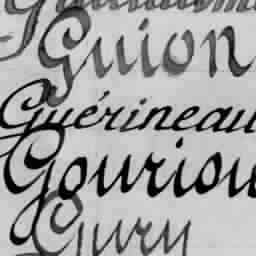 Guion
Guérineau
Gouriou
Gury